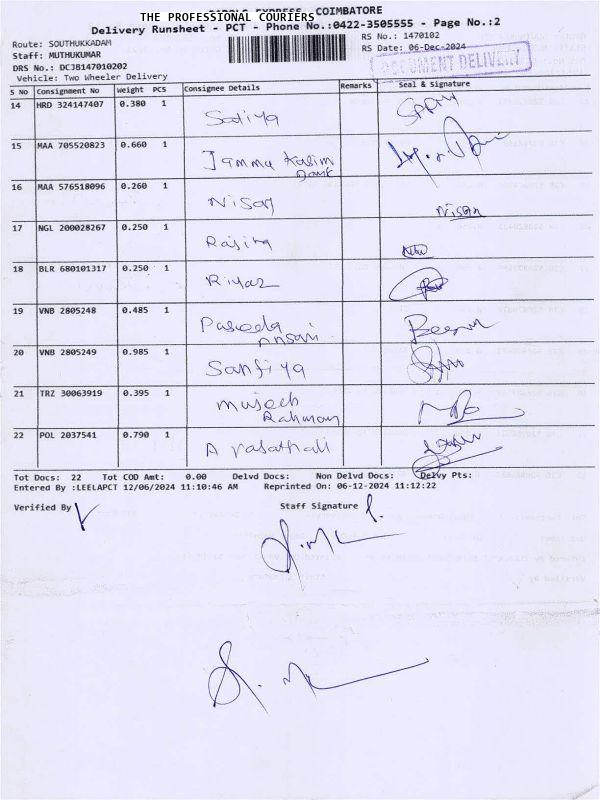 THE PROFESSIONAL COURIERS
EXPRESS COIMBATORE
Delivery Runsheet - PCT - Phone No.:0422-3505555 - Page No.:2
Route: SOUTHUKKADAM
RS No.: 1470102
Staff: MUTHUKUMAR
RS Date: 06-Dec-2024
DRS No.: DCJB147010202
DOCUMENT DELIVERY
Vehicle: Two Wheeler Delivery
S No Consignment No Weight PCS Consignee Details Remarks Seal & Signature
14 HRD 324147407 0.380 1 Satiya
15 MAA 705520823 0.660 1 Jammu Kasim
16 MAA 576518096 0.260 1 Nisay Nisan
17 NGL 200028267 0.250 1 Rasiya
18 BLR 680101317 0.250 1 Riyaz
19 VNB 2805248 0.485 1 Paseeda Ansari
20 VNB 2805249 0.985 1 Sanfiya
21 TRZ 30063919 0.395 1 Mujeeb Rahman
22 POL 2037541 0.790 1
Tot Docs: 22 Tot COD Amt: 0.00 Delvd Docs: Non Delvd Docs: Delvy Pts:
Entered By :LEELAPCT 12/06/2024 11:10:46 AM Reprinted On: 06-12-2024 11:12:22
Verified By Staff Signature